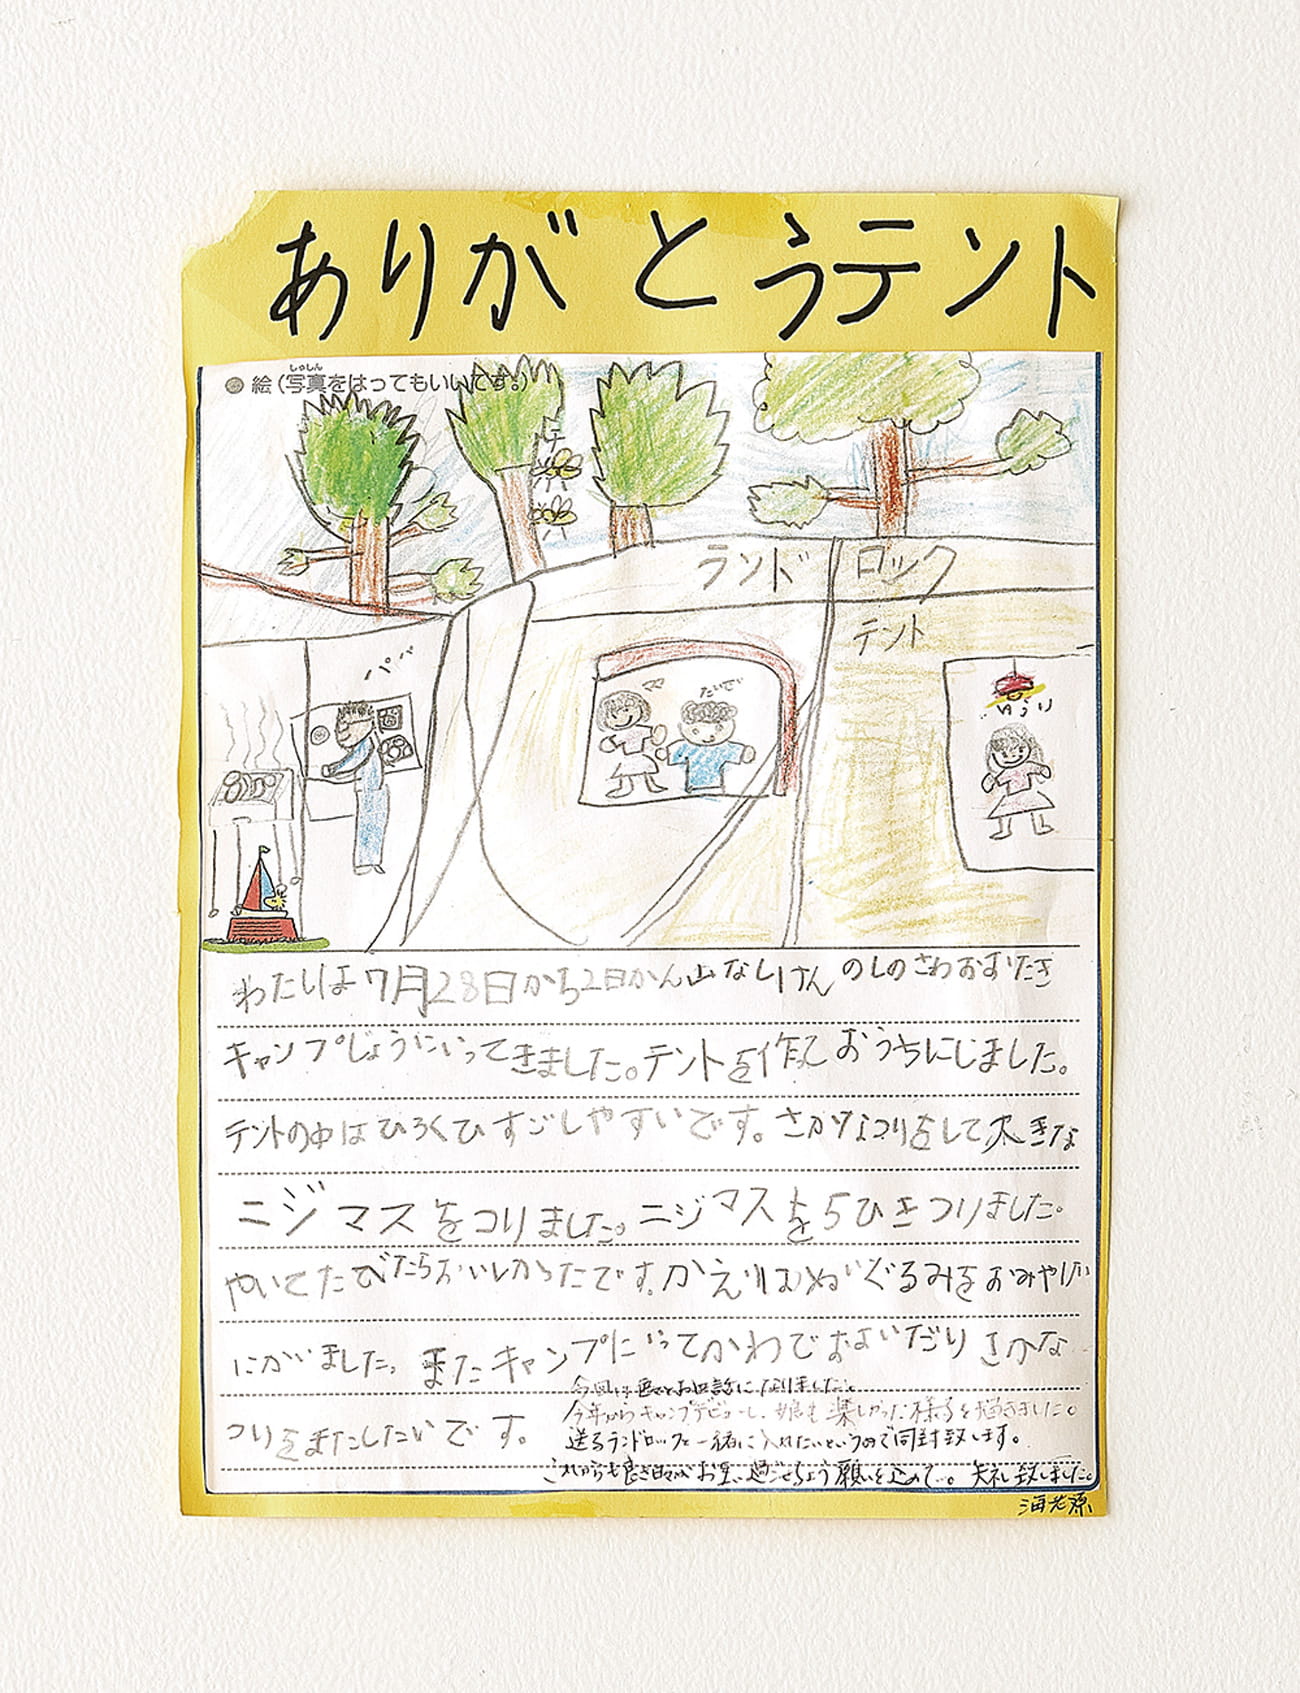 ありがとうテント
絵(写真をはってもいいです。)
しゃしん
ランドロック
テント
パパ
ママ
だいざ
ゆうり
わたしは7月28日から2日かん山なしけんのしのさわおおだき
キャンプじょうにいってきました。テントを作ておうちにじました。
テントの中はひろくひすごしやすいです。さかなつりをして大きな
ニジマスをつりました。ニジマスを5ひきつりました。
やいてたびたらおいしかったです。かえりはぬいぐるみをおみやげ
にかいました。またキャンプにいってかわでおよいだりさかな
つりをまたしたいです。
今回は色々とお世話になりました。
今年からキャンプデビューし、娘も楽しかった様子を描きました。
送るランドロックと一緒に入れたいというので同封致します。
これからも良き日々がお互い過ごせるよう願いを込めて…。失礼致しました。
海老原